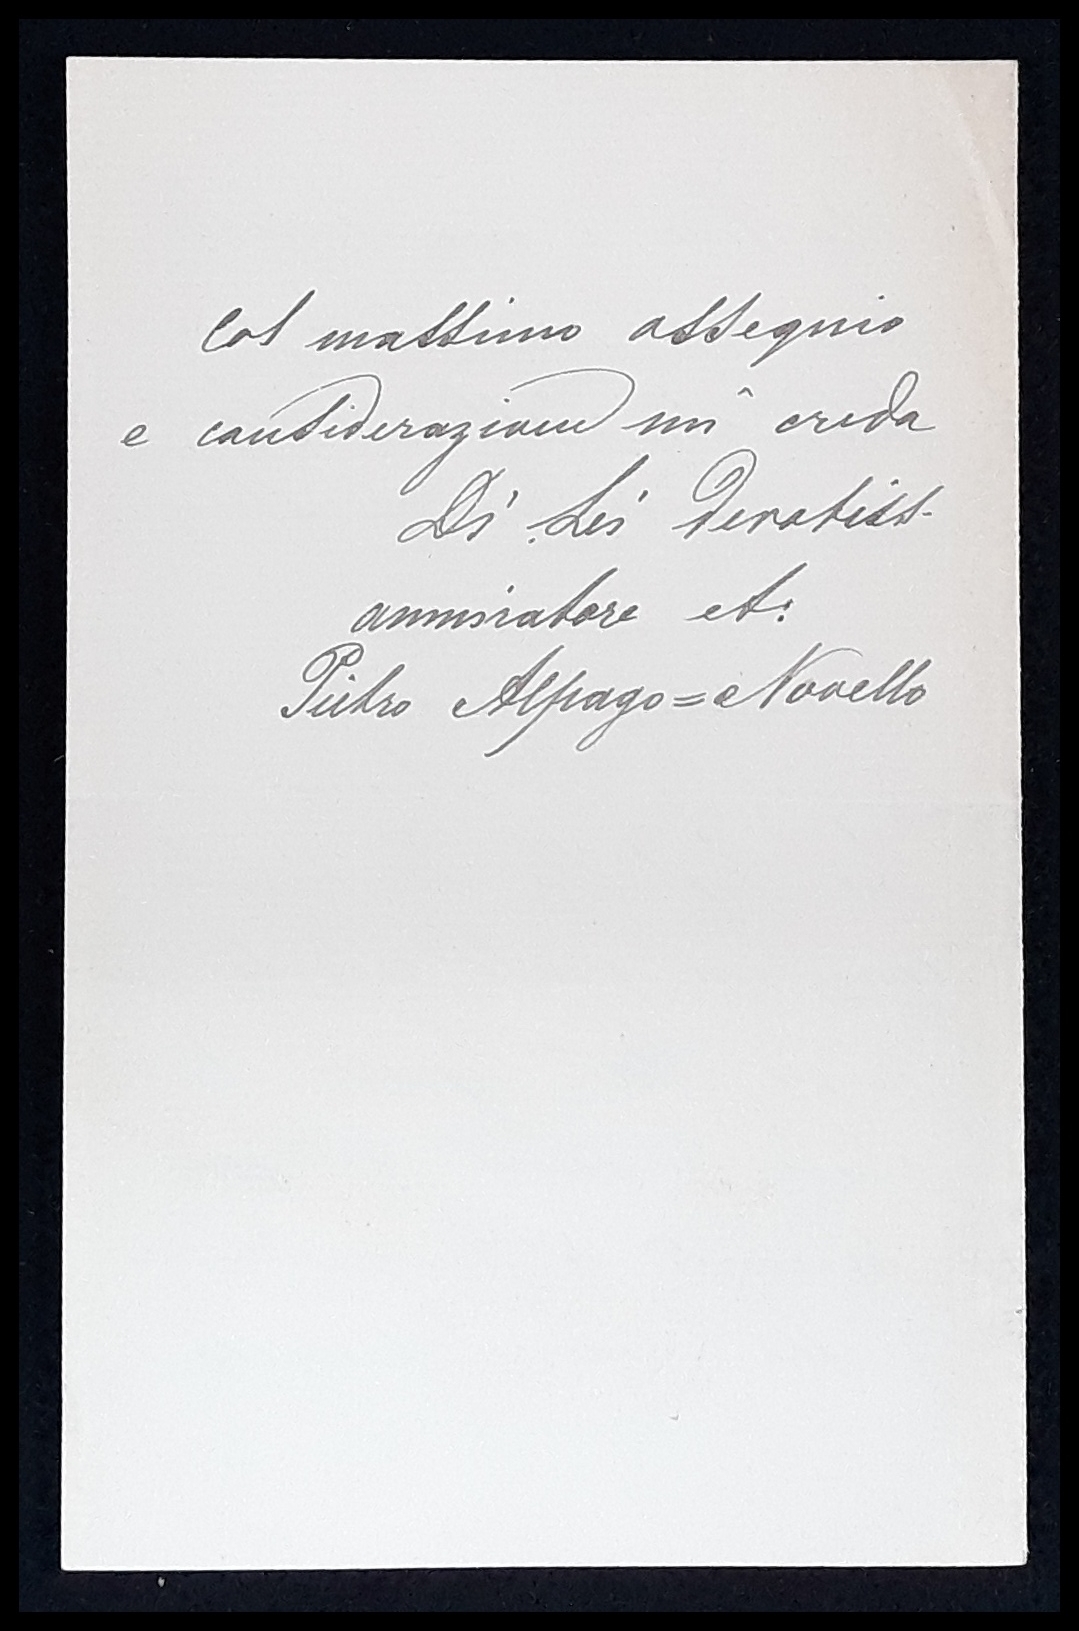 Col massimo ossequio
e considerazione mi creda
Di Lei devotiss.
ammiratore
Pietro Alpago=Novello